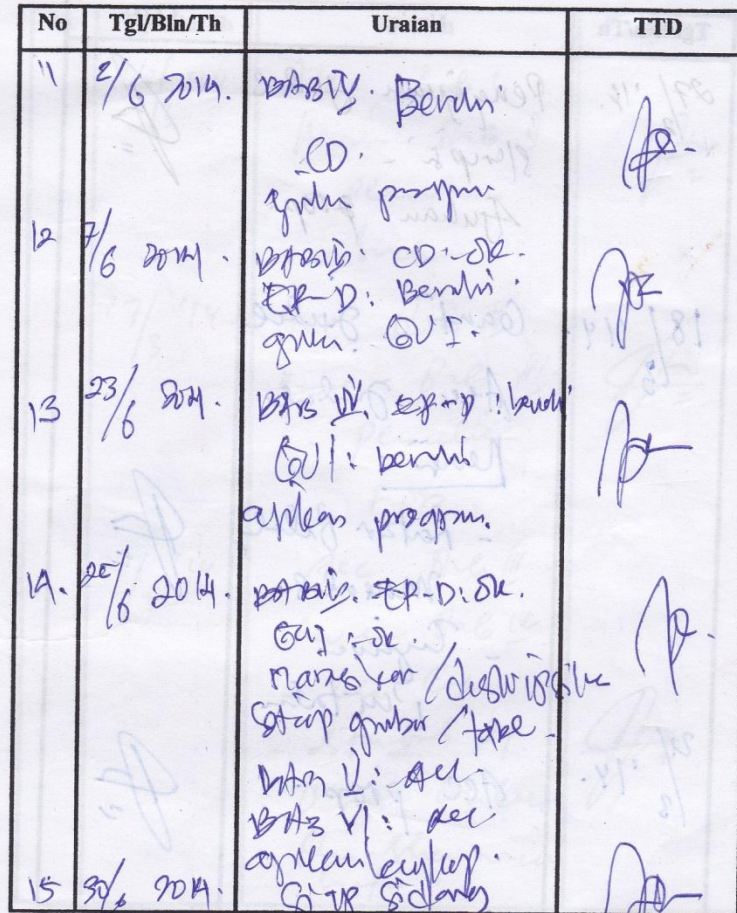 No Tgl/Bln/Th Uraian TTD
11 2/6 2014. BAB IV. Benahi
CD.
program
12 7/6 2014. BAB IV. CD. ok.
ER-D: Benahi
GUI.
13 23/6 2014. BAB IV. ER-D: benahi
GUI: benahi
aplikasi program.
14. 25/6 2014. BAB IV. ER-D: ok.
GUI: ok.
narasikan / deskripsikan
setiap gambar / tabel
BAB V: Acc.
BAB VI: Acc
aplikasi lengkap.
15 30/6 2014. Siap Sidang